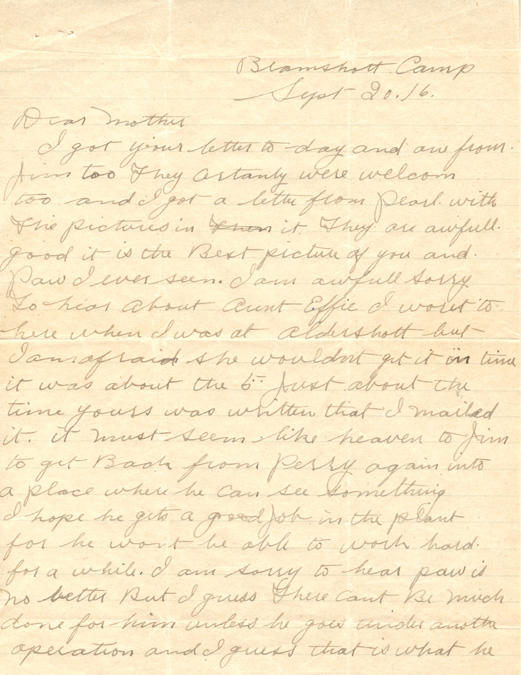 Bramshott Camp
Sept 20.16.
Dear Mother
I got your letter to-day and aw from.
Jim too They certanly were welcom
too and I got a letter from Pearl with
the pictures in it They are awfull.
good it is the Best picture of you and.
Paw I ever seen. I am awfull sorry
to hear about Aunt Effie I worst to
here when I was at Aldershott but
I am afraid she wouldnt get it in time
it was about the 5. Just about the
time yours was written that I mailed
it. it must seem like heaven to Jim
to get Back from Perry again into
a place where he can see something
I hope he gets a good job in the plant
for he wont be able to work hard.
for a while. I am sorry to hear paw is
no better But I guess There cant Be much
done for him unless he goes under anothe
operation and I guess that is what he